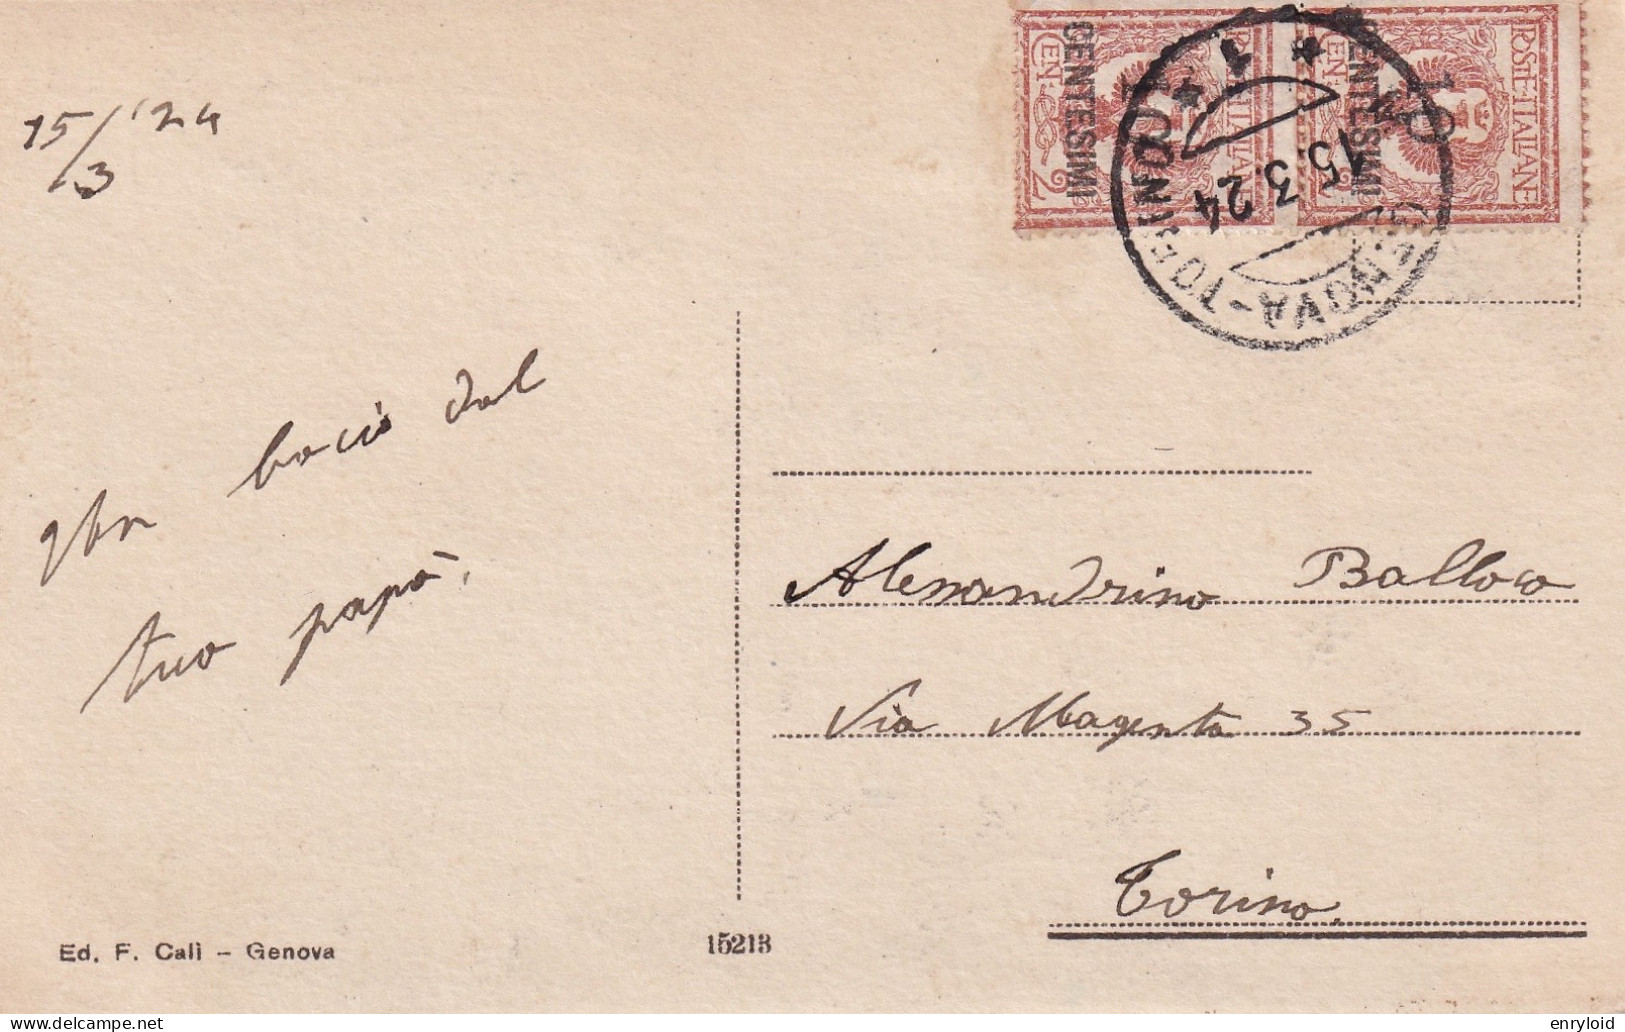 15/3 '24
POSTE ITALIANE
CENTESIMI
CEN. 2
10
CENTESIMI
GENOVA-TORINO
15.3.24
1
Un bacio dal
tuo papà.
Alessandrino Balloco
Via Magenta 35
Torino
Ed. F. Calì – Genova
15213
enryloid